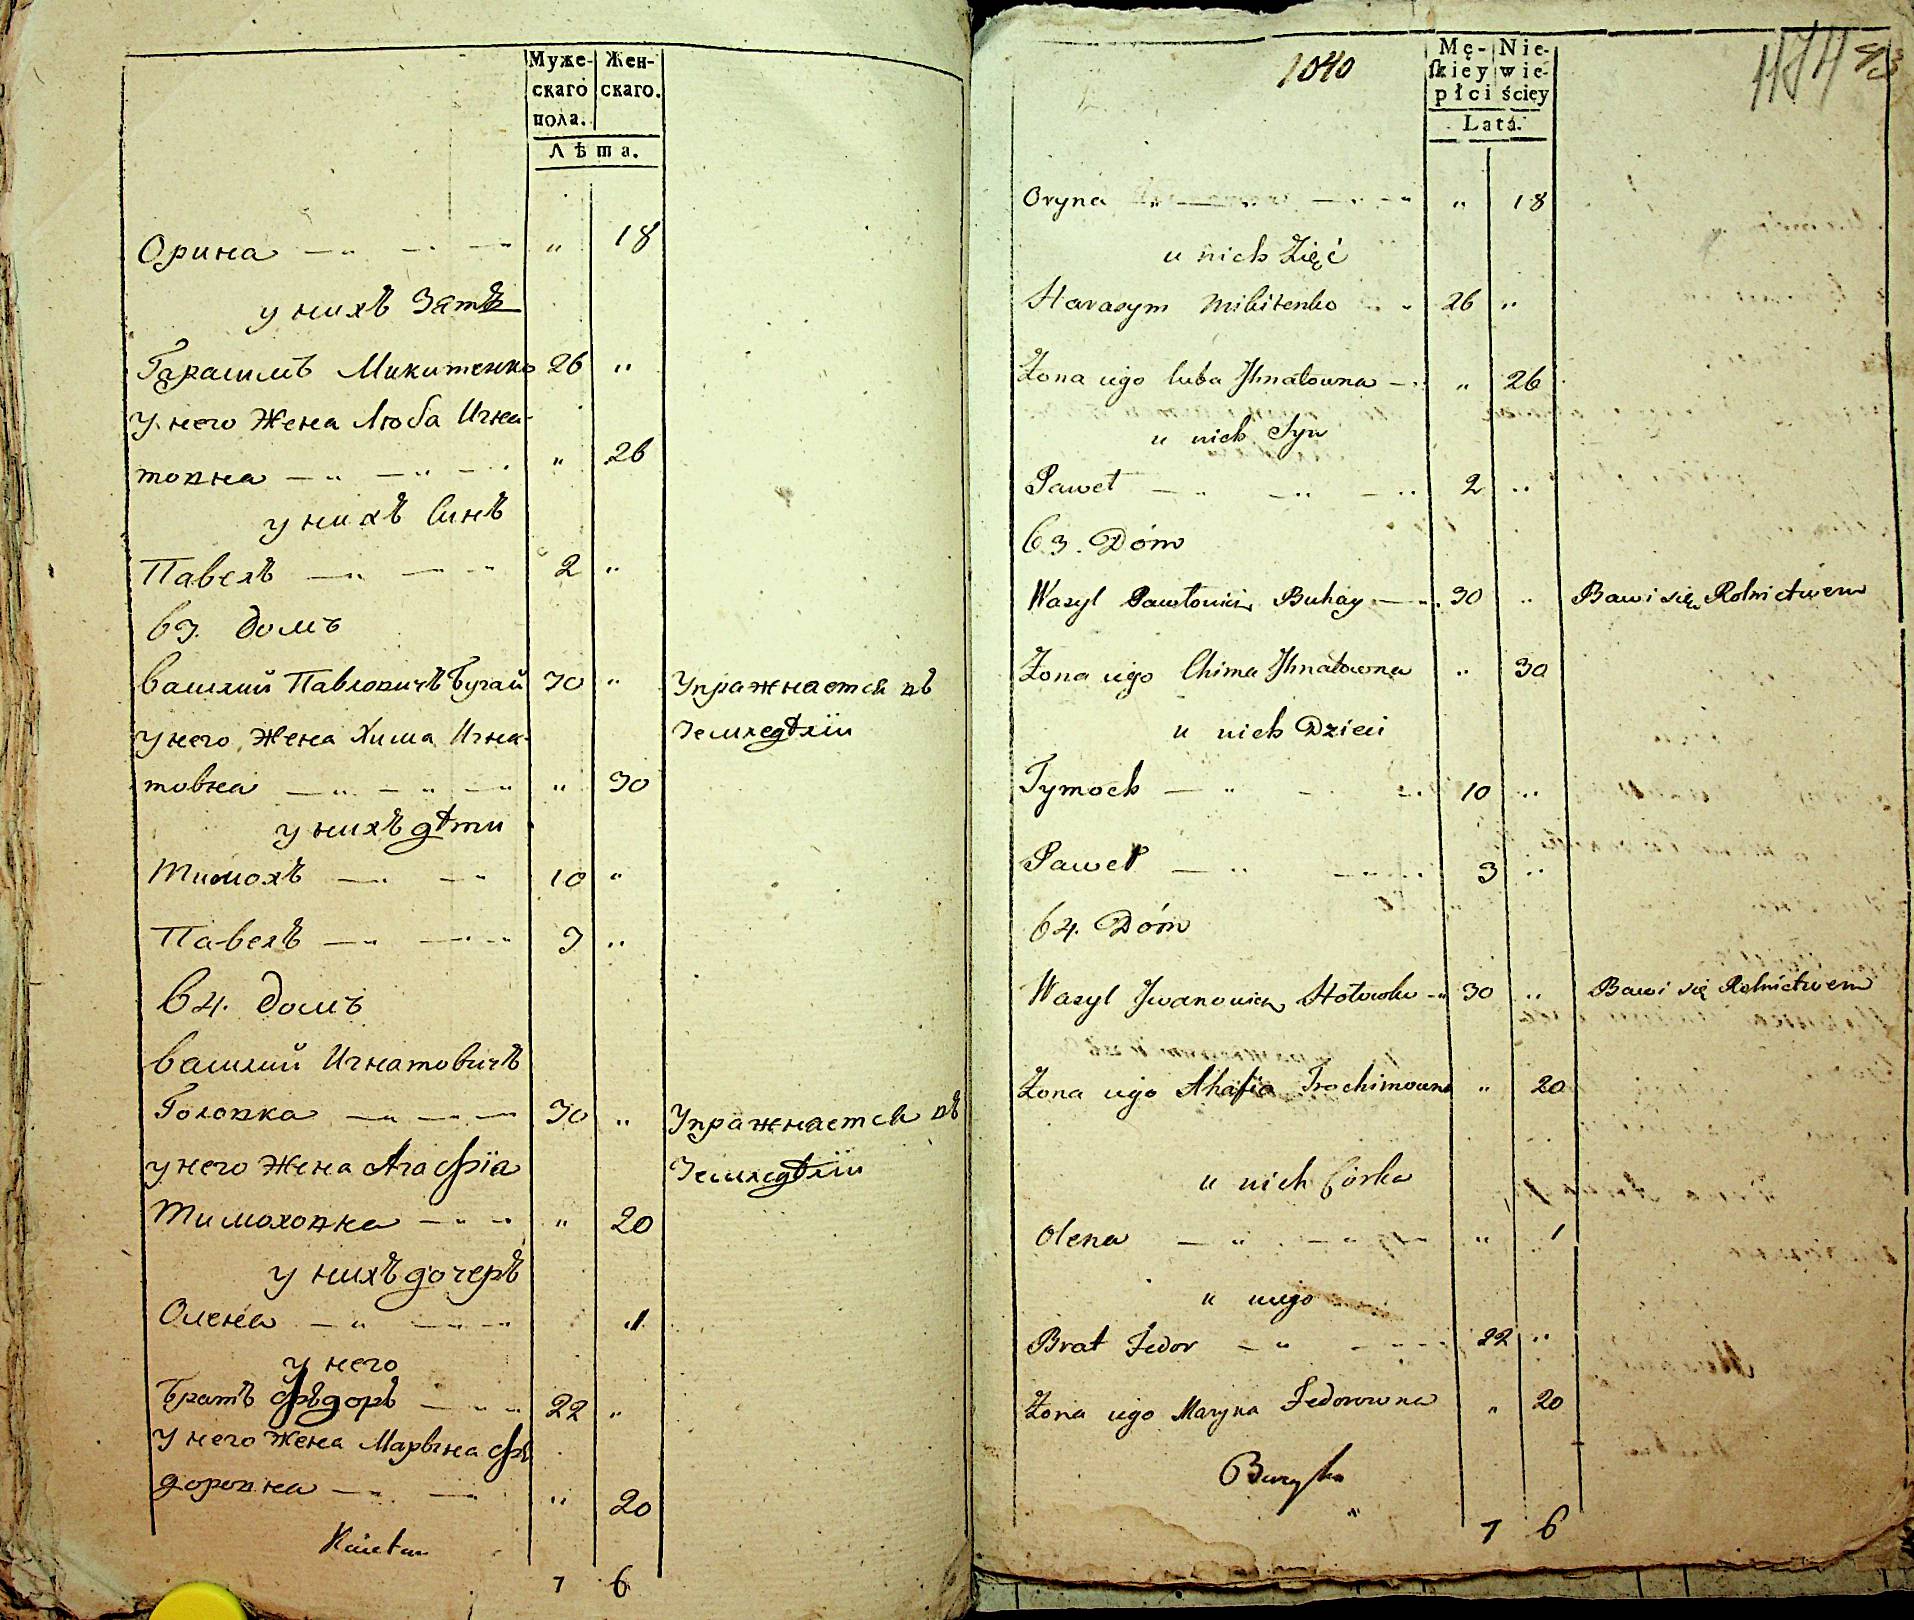 Муже- Жен-
скаго скаго.
пола.
Лѣта.
Орина — " — · — " " 18
у нихъ Зять
Гарасимъ Микитенко 26 "
у него Жена Люба Игна-
товна — " — " — · " 26
у нихъ Синъ
Павелъ — " — · — " 2 "
63. домъ
Василий Павловичъ Бугай 30 " Упражнается въ
Земледѣлїи
у него Жена Хима Игна-
товна — " — " — " " 30
у нихъ дѣти
Тимохъ — " — " 10 "
Павелъ — " — " 3 "
64. домъ
Василий Игнатовичъ
Головка — " — " — 30 " Упражнается въ
Земледѣлїи
у него Жена Агафїа
Тимоховна — " — " 20
у нихъ дочеръ
Олена — " — " — " 1
у него
Братъ Фѣдоръ — " — " 22 "
у него Жена Марьина Фѣ
доровна — " — " 20
7 6
1040
474
Mę- Nie-
skiey wie-
płci ściey
Lata.
Oryna " — " — " — " " 18
u nich Zięć
Harasym Mikitenko " 26 "
Żona iego luba Jhnatowna — " " 26
u nich Syn
Paweł — " — " — " 2 "
63. Dóm
Wasyl Pawłowicz Buhay — " 30 " Bawi się Rolnictwem
Żona iego Chima Jhnatowna " 30
u nich Dzieci
Tymoch — " — " 10 "
Paweł — " — " 3 "
64. Dóm
Wasyl Jwanowicz Hołowko — " 30 " Bawi się Rolnictwem
Żona iego Ahafia Trochimowna " 20
u nich Córka
Olena — " — " — " " 1
u niego
Brat Fedor — " — " 22 "
Żona iego Maryna Fedorowna " 20
7 6